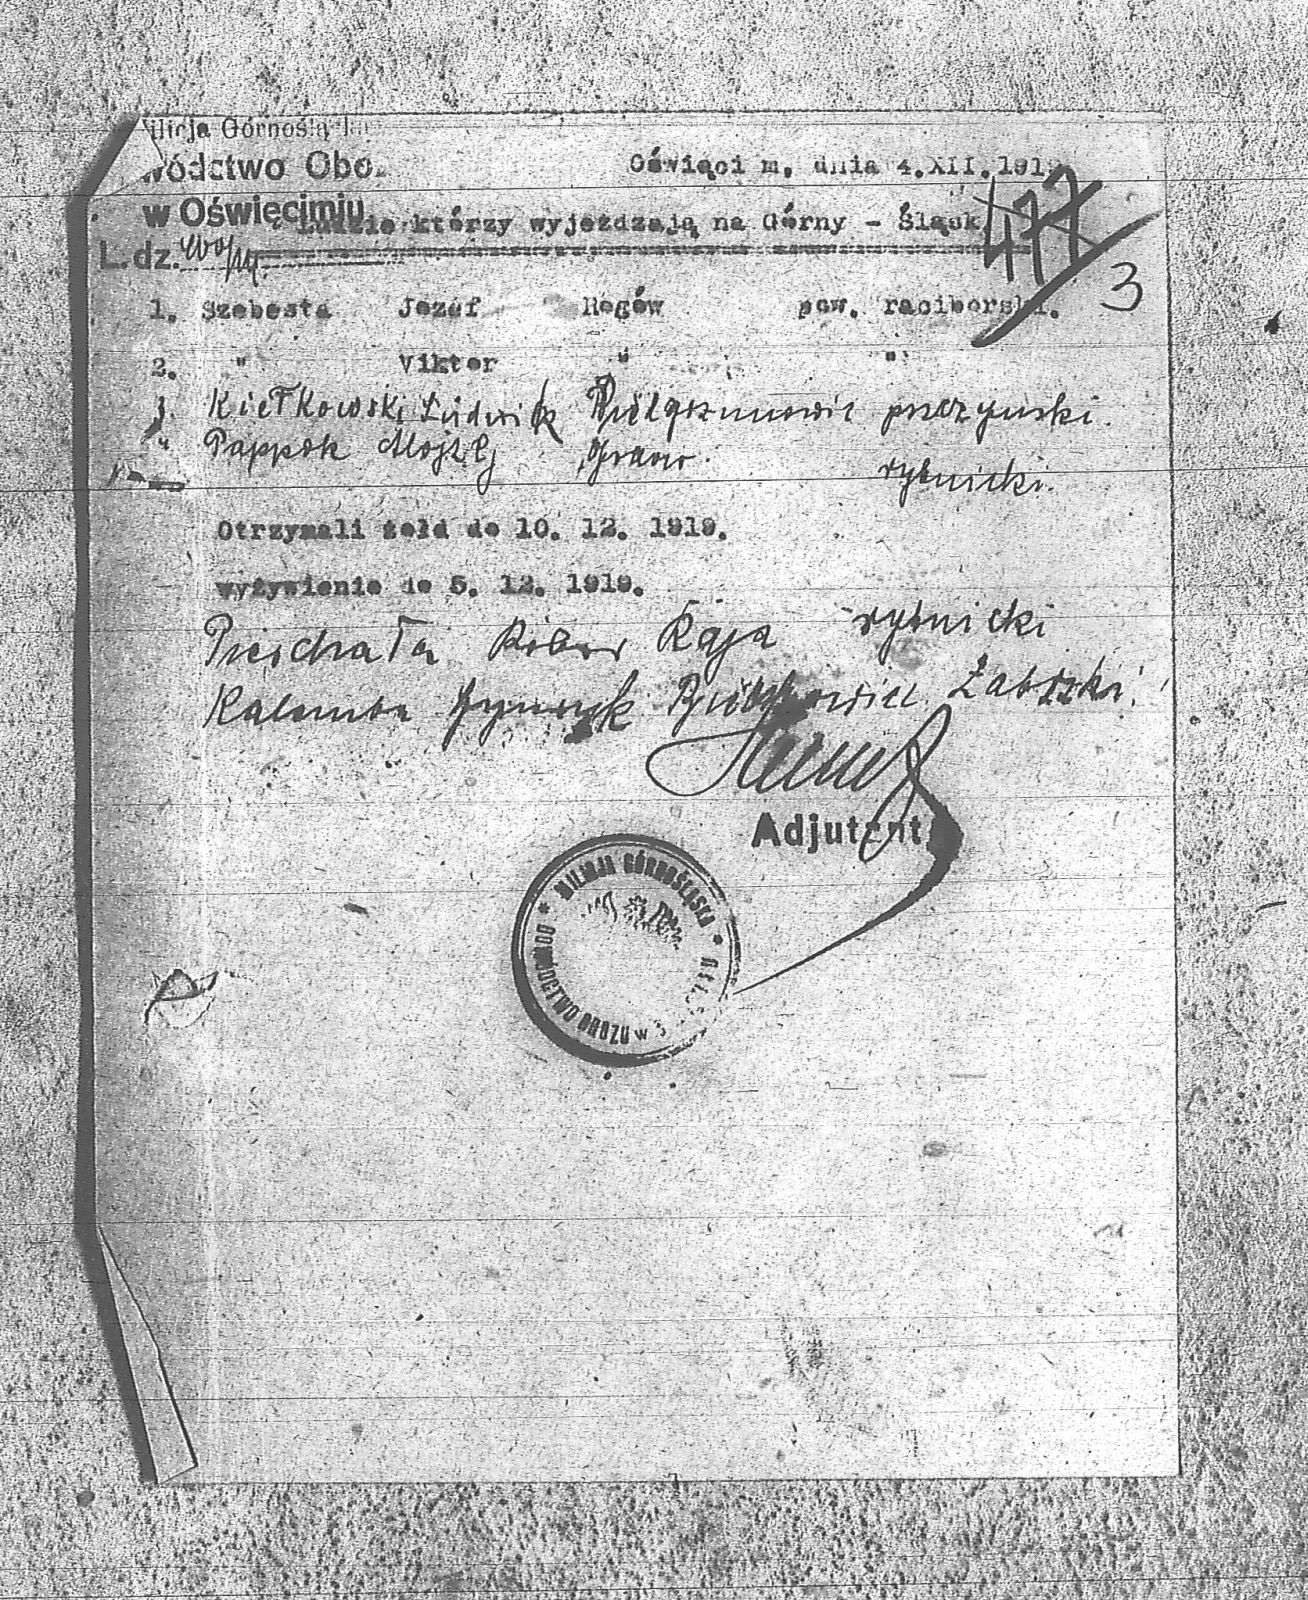 ilicja Górnoślą
wództwo Obo
w Oświęcimiu
L.dz.
Oświęci m, dnia 4.XII.191
Ludzie którzy wyjeżdzają na Górny - Śląsk
477
3
1. Szebesta Jozef Rogów pow. raciborski.
2. " Viktor " "
3. Kiełkowski Ludwik pszczynski.
Pappok Alojzy rybnicki.
Otrzymali żołd do 10. 12. 1919.
wyżywienie do 5. 12. 1919.
Piechała Raja rybnicki
Kalemba Zabrski
Adjutant
* MILICJA GÓRNOŚLĄSKA *
DOWÓDCTWO OBOZU w